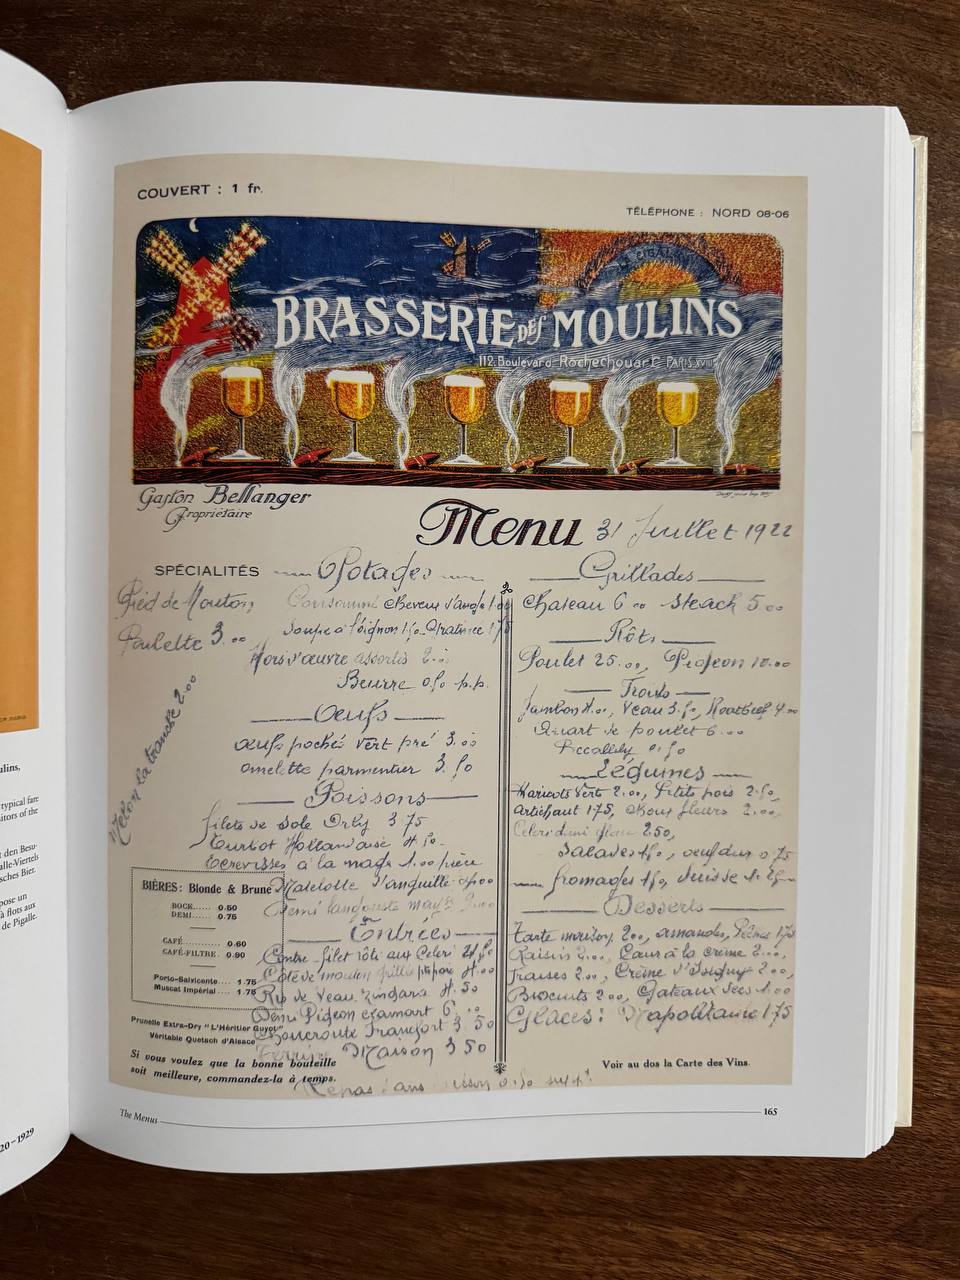 COUVERT : 1 fr.
TÉLÉPHONE : NORD 08-06
BRASSERIE DES MOULINS
112, Boulevard Rochechouart PARIS XVIII
Gaston Bellanger
Propriétaire
Menu 31 Juillet 1922
SPÉCIALITÉS
Pied de Mouton
Poulette 3.00
Melon la tranche 2.00
Potages
Consommé cheveux d'ange 1.00
Soupe à l'oignon 1.50 Gratinée 1.75
Hors d'œuvre assortis 2.00
Beurre 0.50 p.p.
Œufs
Œufs pochés vert pré 3.00
Omelette parmentier 3.50
Poissons
filets de Sole Orly 3.75
Turbot Hollandaise 4.50
Ecrevisses à la nage 1.00 pièce
Matelotte d'anguille 4.00
Demi langouste mayse
Entrées
Contre-filet rôti aux Céleri
Côte de mouton grillée 4.00
Ris de Veau Zingara 4.50
Demi Pigeon 6.00
Choucroute Francfort 3.50
Terrine Maison 3.50
BIÈRES : Blonde & Brune
BOCK...... 0.50
DEMI...... 0.75
CAFÉ........... 0.60
CAFÉ-FILTRE.. 0.90
Porto-Salvicente... 1.75
Muscat Impérial.. 1.75
Prunelle Extra-Dry "L'Héritier Guyot"
Véritable Quetsch d'Alsace
Si vous voulez que la bonne bouteille
soit meilleure, commandez-la à temps.
Repas sans boisson 0.50 supt
Grillades
Chateau 6.00 Steack 5.00
Rôts
Poulet 25.00, Pigeon 10.00
Froids
Jambon 4.00, Veau 3.50, Roastbeef 4.00
Quart de poulet 6.00
Piccallily 0.50
Légumes
Haricots verts 2.00, Petits pois 2.50,
Artichaut 1.75, Choux fleurs 2.00,
Céleri demi glace 2.50,
Salades 1.50, oeuf dur 0.75
fromages 1.50, Suisse
Desserts
Tarte maison 2.00, amandes, Pêches 1.75
Raisins 2.00, Cœur à la crème 2.00,
Fraises 2.00, Crème d'Isigny 2.00,
Biscuits 2.00, Gateaux secs 1.00
Glaces : Napolitaine 1.75
Voir au dos la Carte des Vins.
The Menus
165
ulins,
typical fare
itors of the
t den Besu-
alle-Viertels
sches Bier.
pose un
à flots aux
de Pigalle.
20–1929